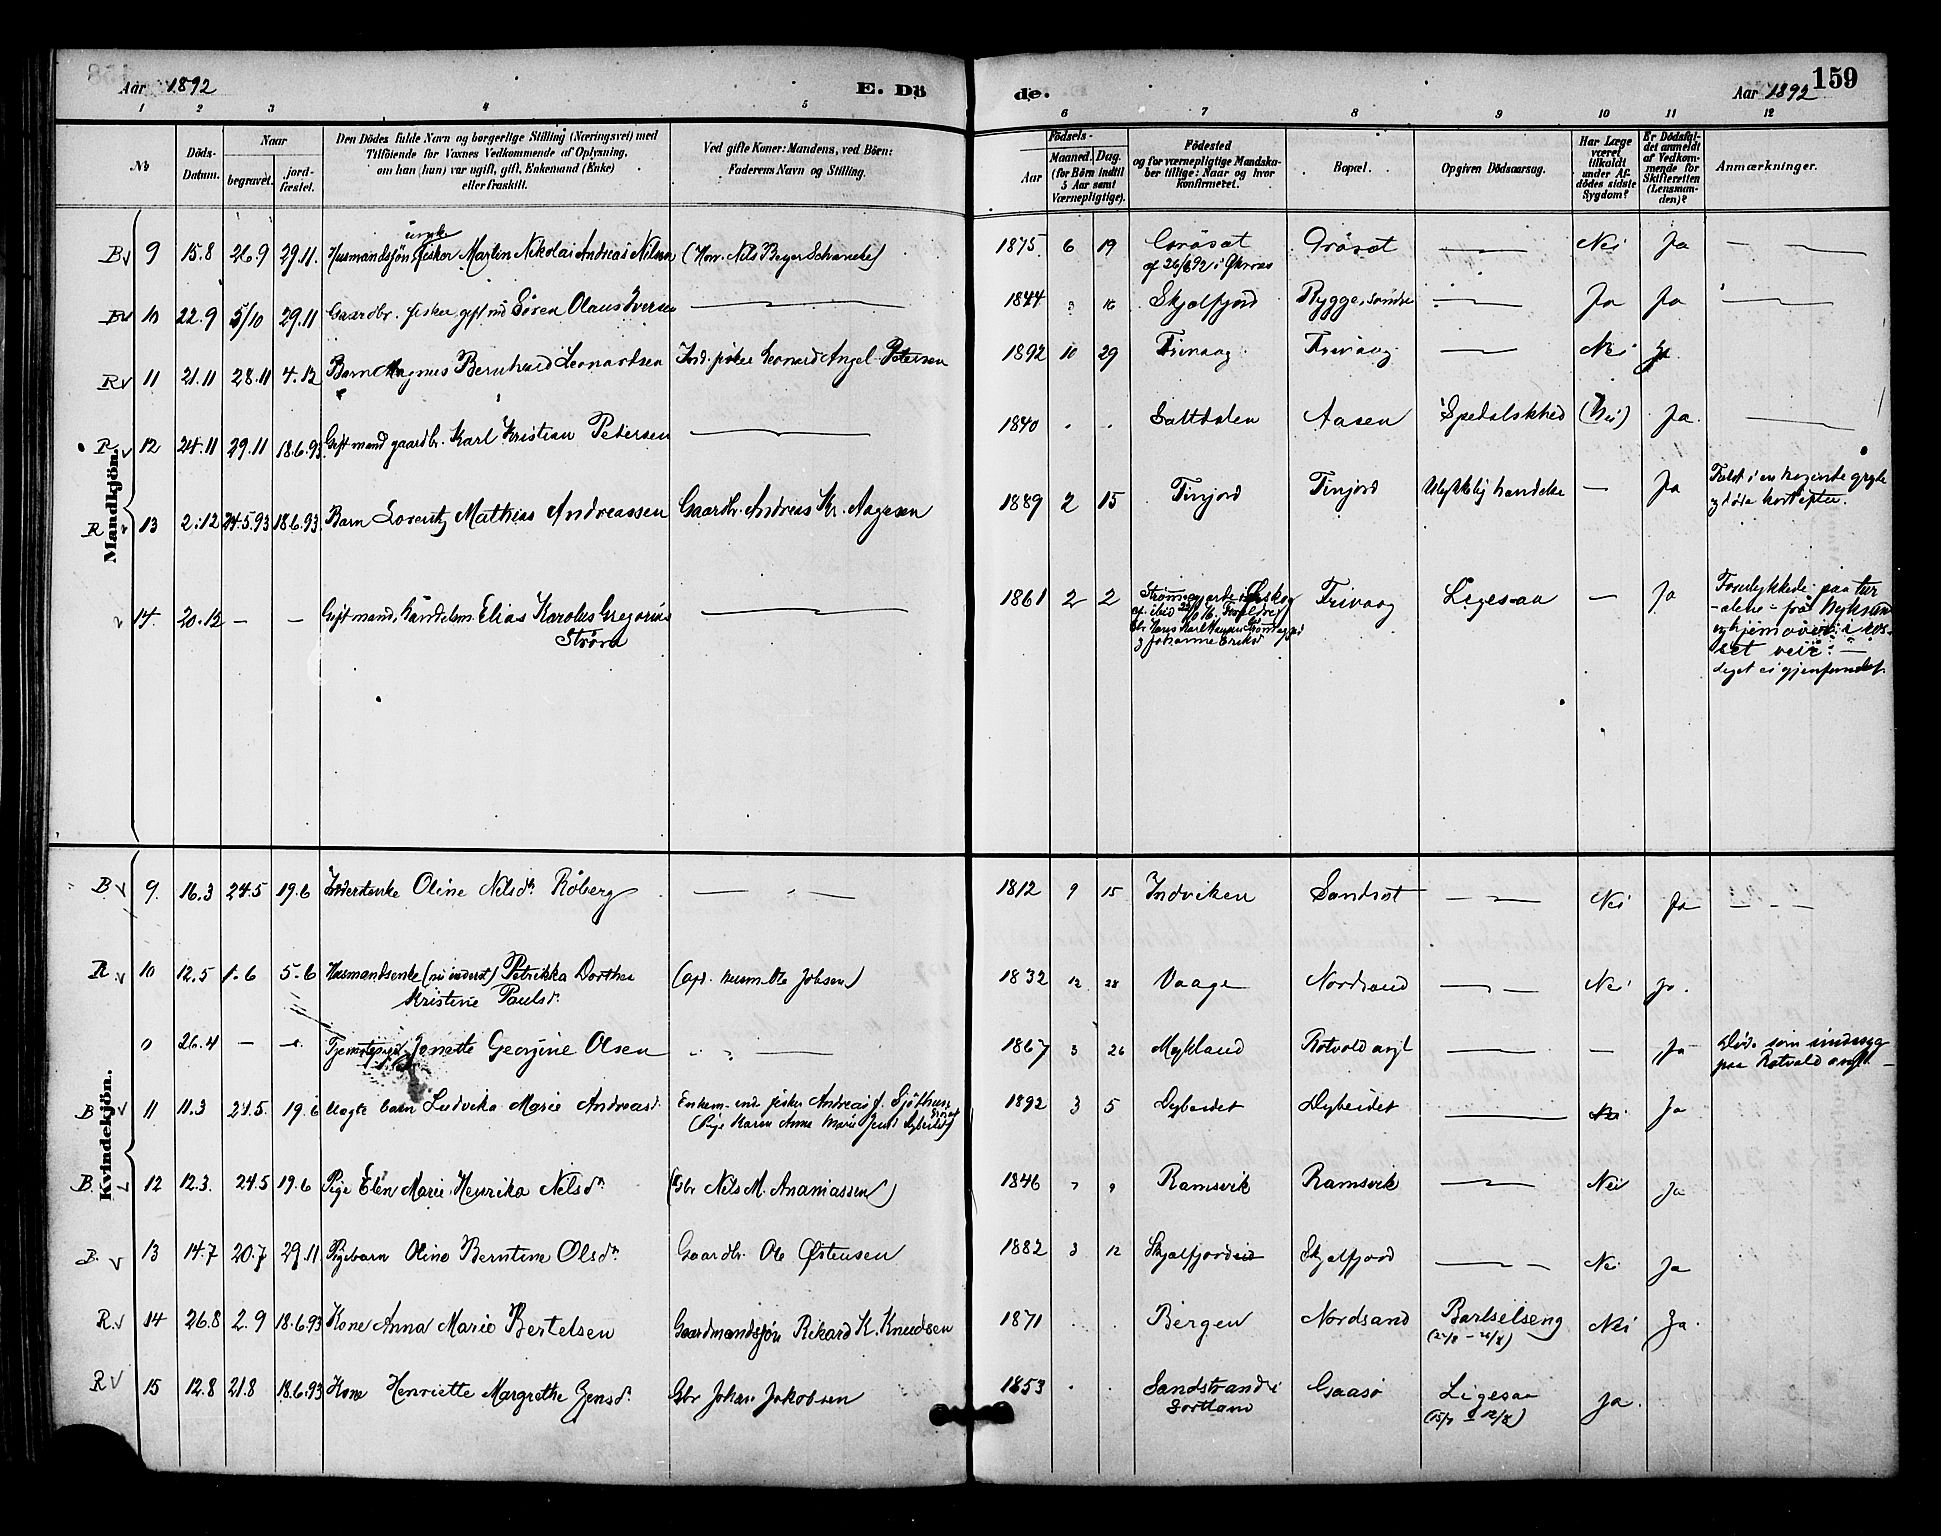 Aar 1892 E. Dö
de. Aar 1892 159
1 2 3 4 5 6 7 8 9 10 11 12
No
Döds-Datum.
Naar
begravet.
jord-fæstet.
Den Dödes fulde Navn og borgerlige Stilling (Næringsvei) med
Tilföiende for Voxnes Vedkommende af Oplysning,
om han (hun) var ugift, gift, Enkemand (Enke)
eller fraskilt.
Ved gifte Koner: Mandens, ved Börn:
Faderens Navn og Stilling.
Födsels-
Aar
Maaned. Dag.
(for Börn indtil
5 Aar samt
Værnepligtige).
Födested
og for værnepligtige Mandska-
ber tillige: Naar og hvor
konfirmeret.
Bopæl.
Opgiven Dödsaarsag.
Har Læge
været
tilkaldt
under Af-
dödes sidste
Sygdom?
Er Dödsfal-
det anmeldt
af Vedkom-
mende for
Skifteretten
(Lensman-
den)?
Anmærkninger.
Mandkjön.
B v 9 15.8 26.9 29.11. Husmandsjön, fisker Martin Nikolai Andreas Nilsen 1875 6 19 Grösæt Grösæt — Nei Ja —
B v 10 22.9 5/10 29.11 Gaardbr. fisker gift md Sören Olaus Iversen — 1844 16 Skjælfjord — Ja Ja —
R v 11 21.11 28.11 4.12 Barn Magnus Bernhard Leonardsen Ind. fisker Leonard Angel Petersen 1892 10 29 Finvaag Finvaag — Nei Ja
R v 12 24.11 29.11 18.6.93 Gift mand gaardbr. Karl Kristian Petersen — 1840 Saltdalen Aasen Spedalskhed (Nei) Ja —
R v 13 2.12 24.5.93 18.6.93 Barn Lorentz Mathias Andreassen Gaardbr. Andreas Kr. Aagesen 1889 2 15 Finjord Finjord Ulykkelig hændelse — Ja Faldt i en kogende gryte
og döde kort efter.
v 14. 20.12 — — Gift mand, handelsm. Elias Karolus Gregorius
Strøm — 1861 2 2 Finvaag Ligesaa — Ja Forulykkede paa tur
alene fra
og hjemover i
set veir. —
Liget ei gjenfundet.
Kvindekjön.
B. v 9. 16.3 24.5 19.6 Inderstenke Oline Nilsdr Röberg — 1812 9 15 Indviken Sandsæt — Nei Ja —
R. v 10 12.5 1.6 5.6 Husmandsenke (nu inderst) Petrikka Dorthea
Kristine Paulsdr (afd. husm. Ole Johsen) 1832 12 28 Vaage Nordsand — Nei Ja.
0 26.4 — — Tjenestepige Jonette Georgine Olsen — 1867 3 26 Mykland Rotvold asyl — — Ja Död som sindssyg
paa Rotvold asyl.
B v 11 11.3 24.5. 19.6 uægte barn Ludvika Marie Andreasdr Enkem. fisker Andreas
Pige Karen Anna Marie 1892 3 5 Dybeidet Dybeidet — Nei Ja
B. 12 12.3. 24.5 19.6 Pige Elen Marie Henrika Nilsdr (Gbr Nils M. Ananiassen) 1846 7 9 Ramsvik Ramsvik — Nei Ja
B. v 13 14.7 20.7 29.11 Pigebarn Olino Berntine Olsdr Gaardbr. Ole Østensen 1882 3 12 Skjælfjordeid Skjælfjord — Nei Ja
R. v 14 26.8 2.9 18.6.93 Kone Anna Marie Bertelsen Gaardmandsjön Rikard K. Knudsen 1871 Bergen Nordsand Barselseng Nei Ja.
R v 15 12.8 21.8 18.6.93 Kone Henriette Margrethe Jensdr Gbr Johan Jakobsen 1853 Sandstrand i
Sortland Gaasö Ligesaa
(15/7 12/8) Ja.